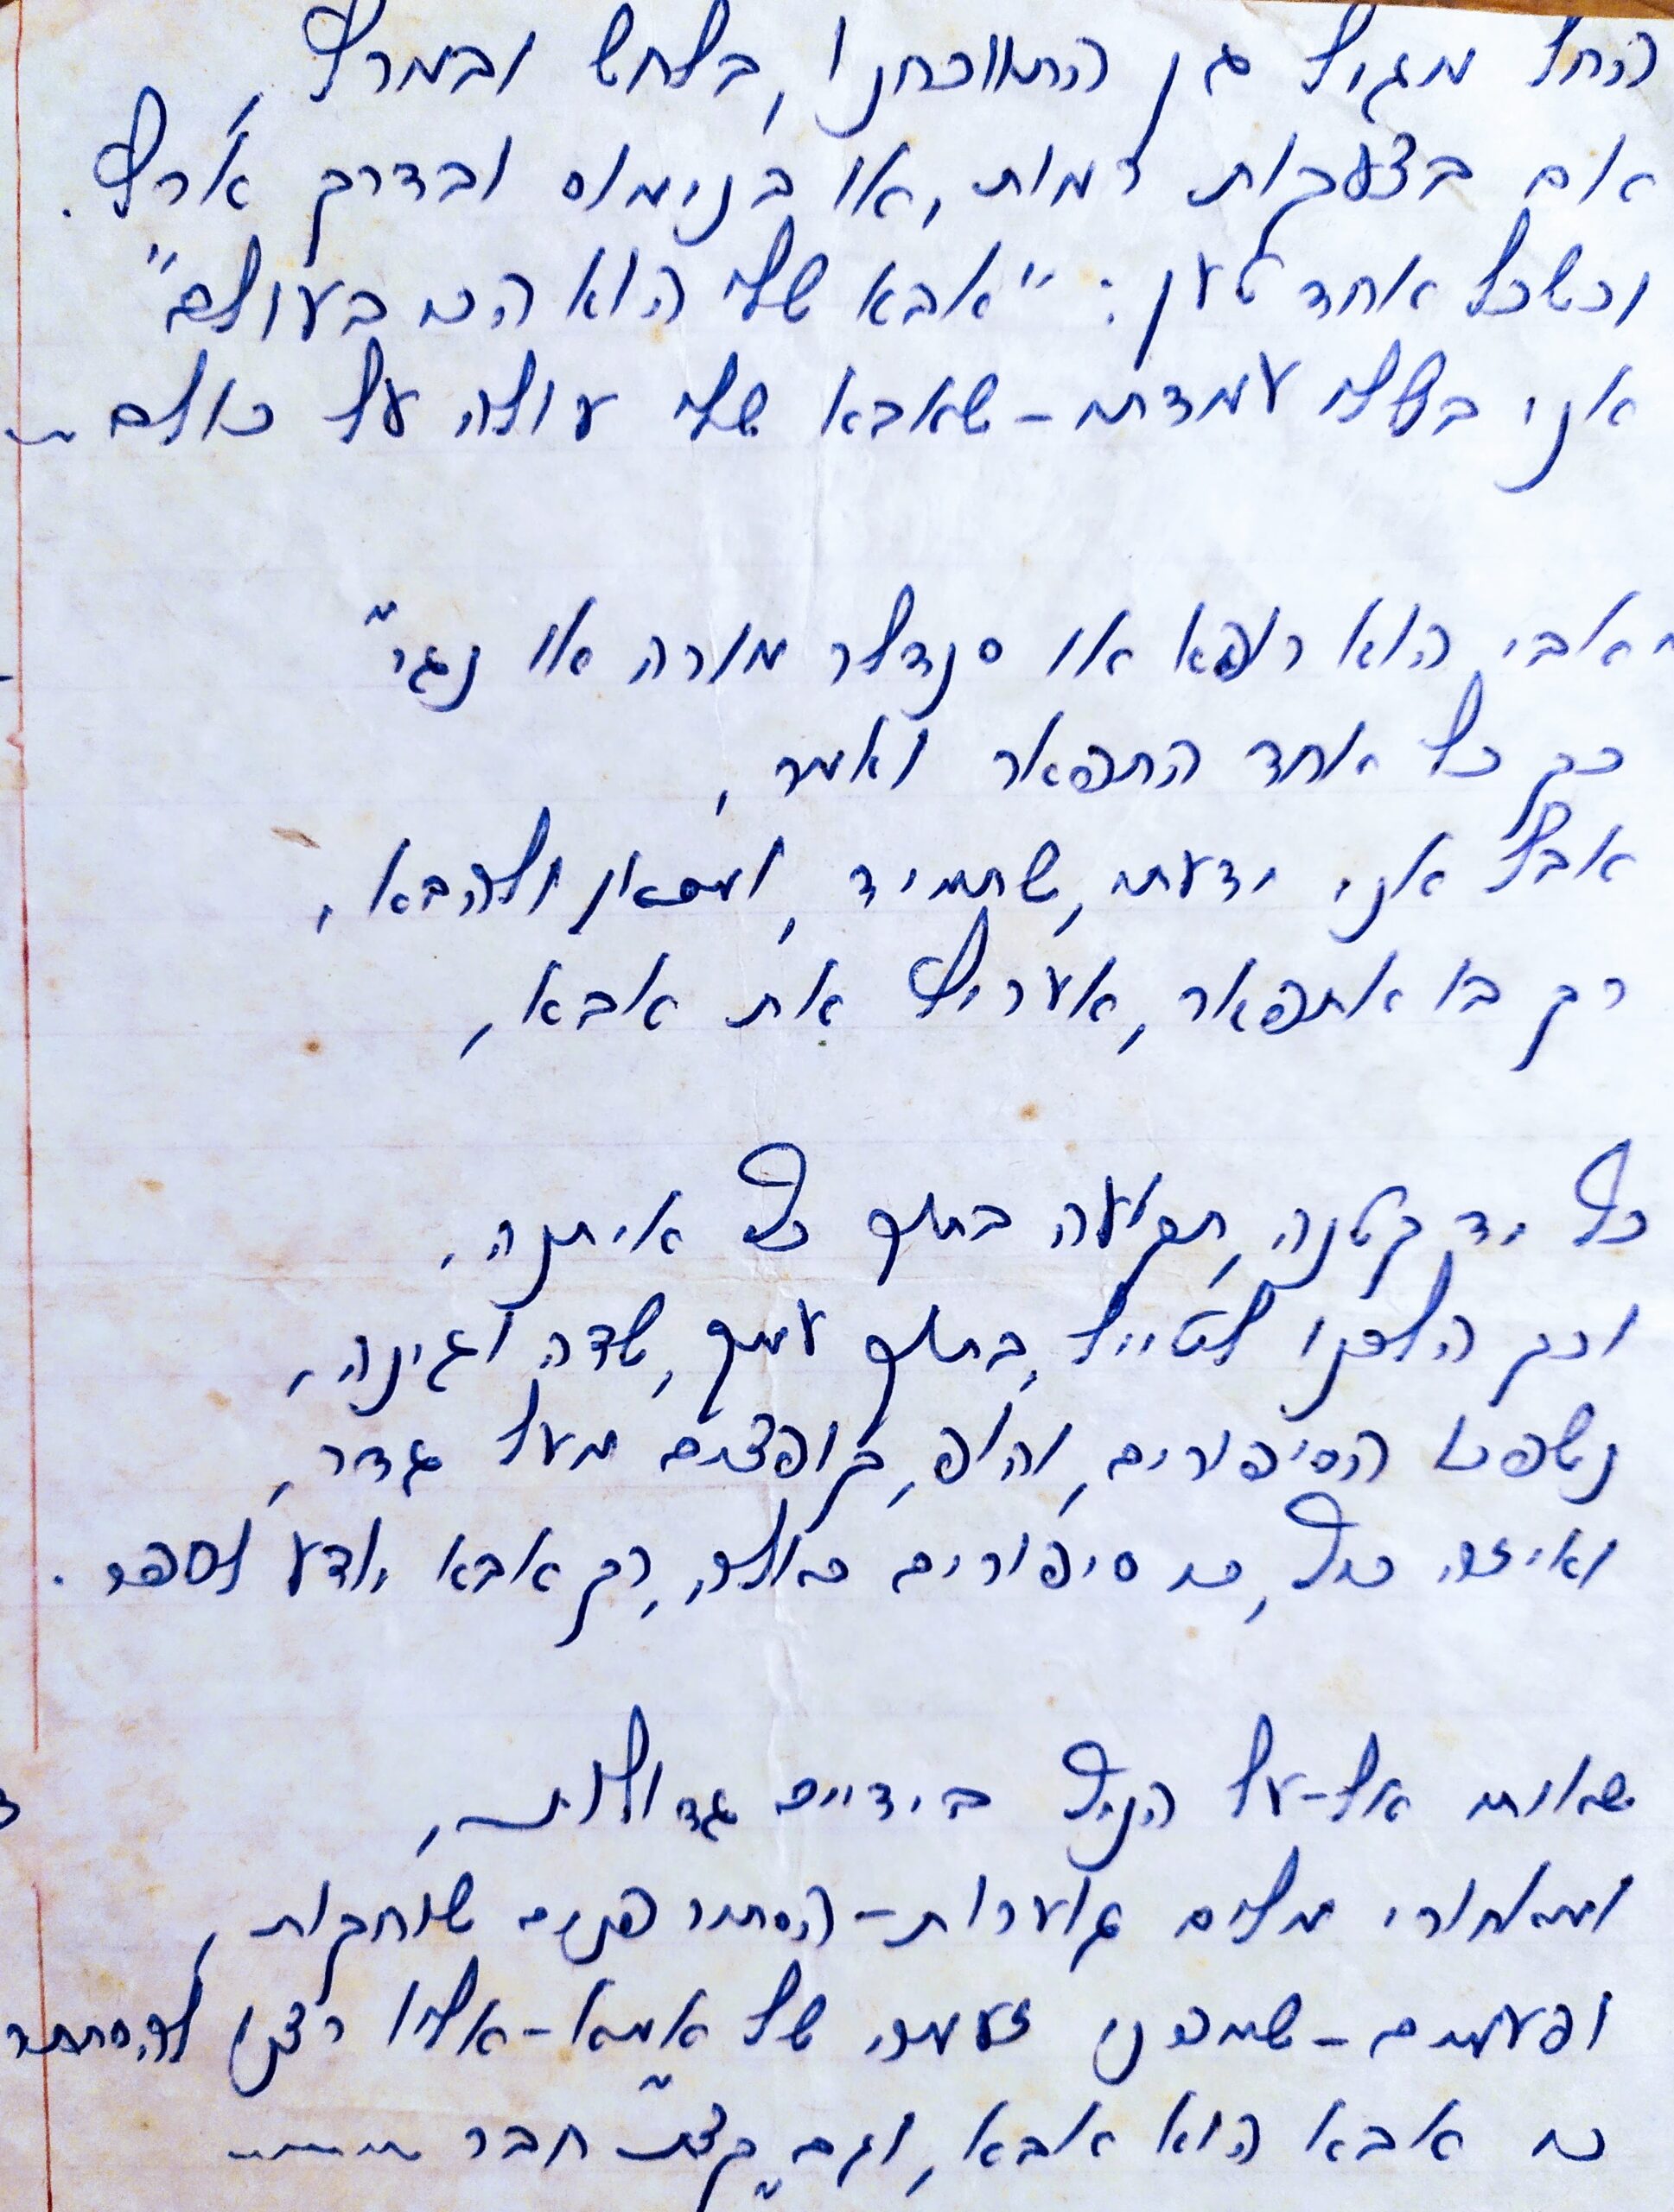 החל מגיל גן התווכחנו, בלחש ובמרץ,
אם בצעקות רמות, או בנימוס ובדרך ארץ.
וכשכל אחד טען: "אבא שלי הוא הכי בעולם"
אני בשלי עמדתי - שאבא שלי עולה על כולם...
"אבי הוא רופא או סנדלר מורה או נגר"
כך כל אחד התפאר ואמר,
אבל אני ידעתי, שתמיד, ומכאן ולהבא,
רק בו אתפאר, אעריץ את אבא,
כל יד קטנה, תקועה בתוך כף איתנה,
וכך הלכנו לטייל, בתוך עמק, שדה וגינה,
נשפכו הסיפורים, והופ, קופצים מעל גדר,
ואיזה כיף, כי סיפורים כאלה, רק אבא יודע לספר.
שאותי אל-על הניף בידיים גדולות,
ומאחורי מלים גוערות - הסתיר פנים שוחקות,
ופעמים - שמפני זעמה של אמא - אליו רצנו להסתתר
כי אבא הוא אבא, וגם "קצת" חבר ......